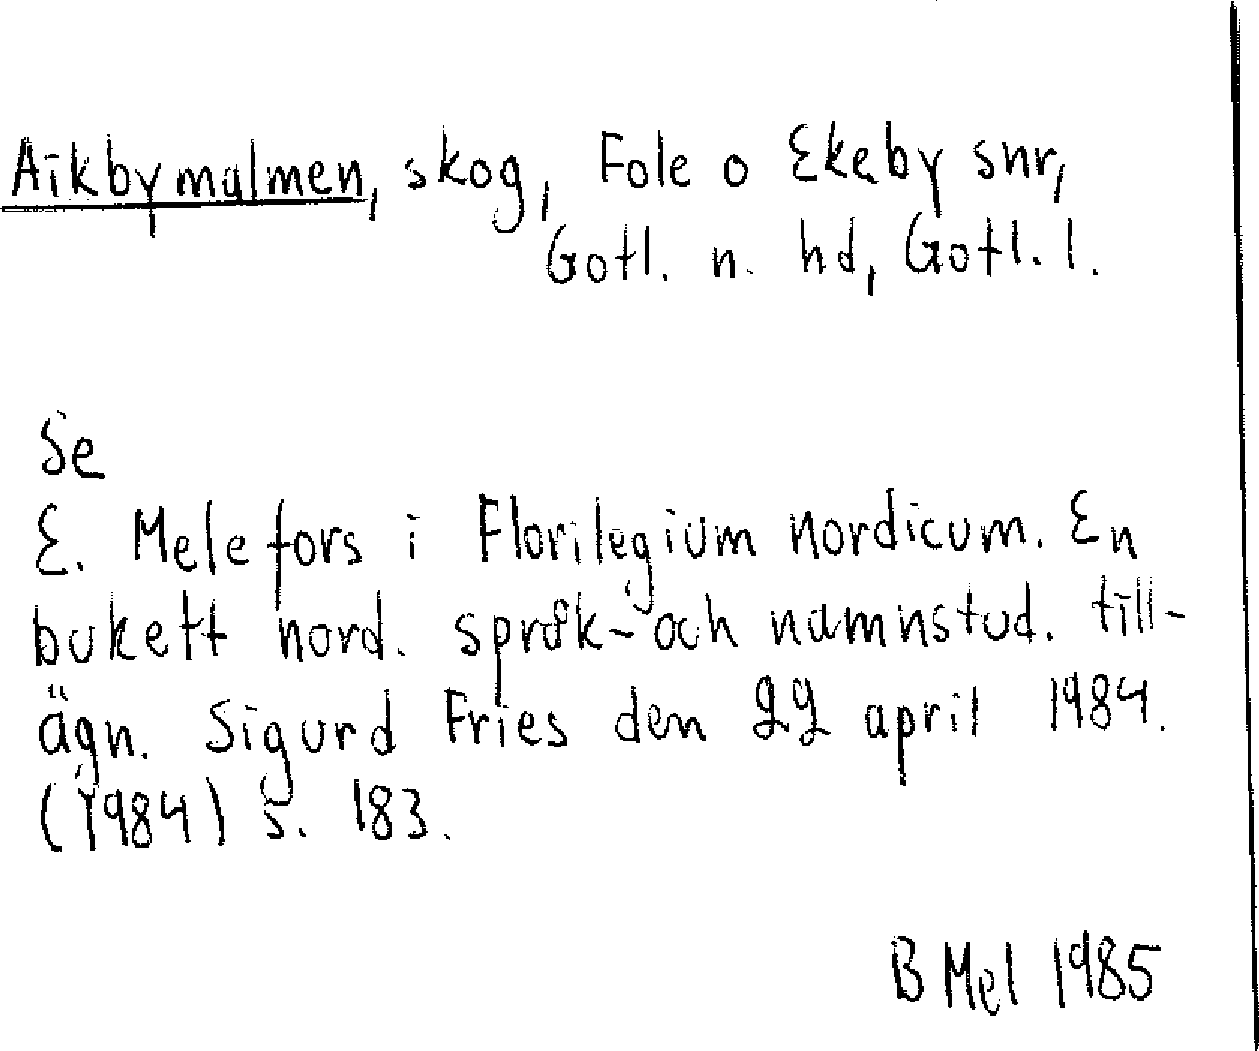 Aikbymalmen, skog, Fole o Ekeby snr,
Gotl. n. hd, Gotl. l.
Se
E. Melefors i Florilegium nordicum. En
bukett nord. språk- och namnstud. till-
ägn. Sigurd Fries den 22 april 1984.
(1984) s. 183.
B Mel 1985